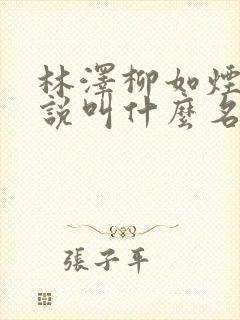 林澤柳如煙
説叫什麼名
張子平